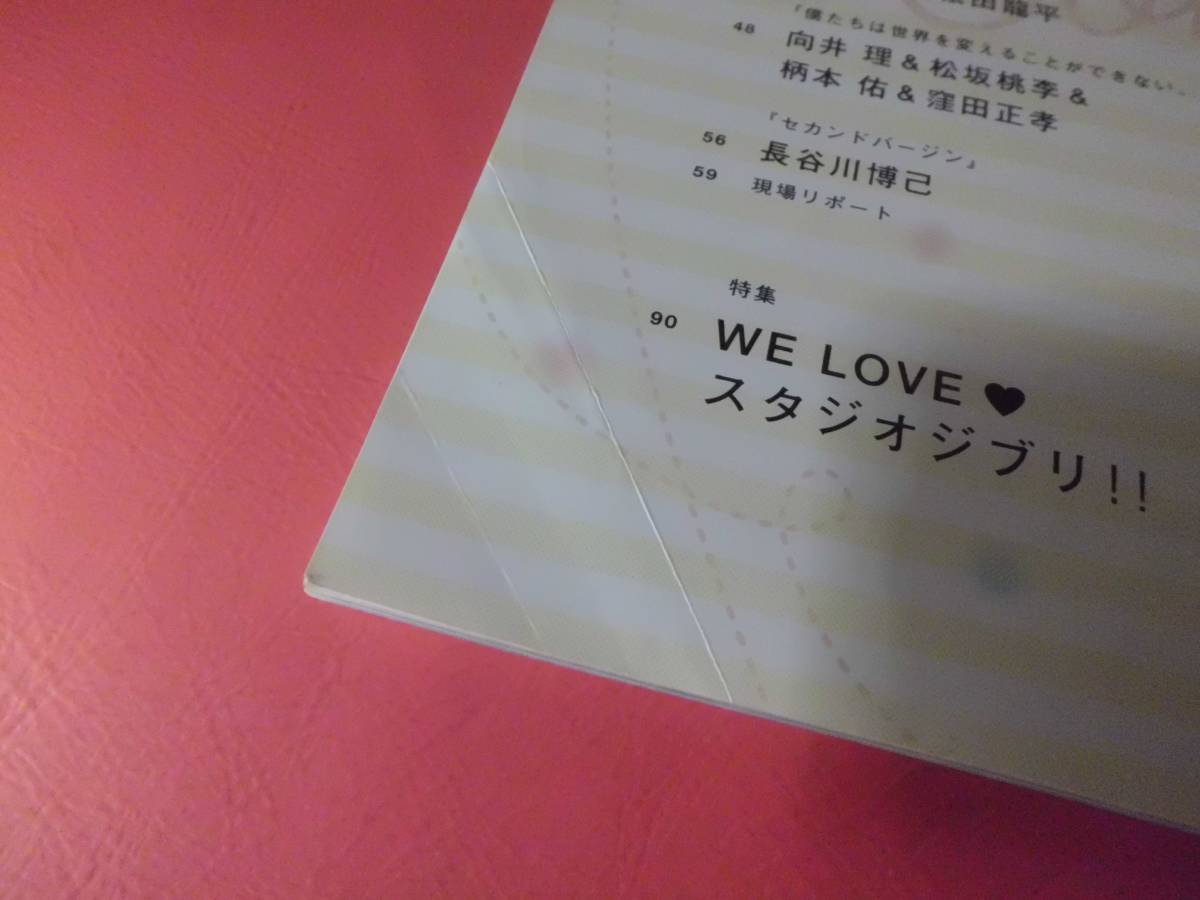 田龍平
『僕たちは世界を変えることができない。
48 向井 理&松坂桃李&
柄本 佑&窪田正孝
『セカンドバージン』
56 長谷川博己
59 現場リポート
特集
90 WE LOVE ♥
スタジオジブリ!!